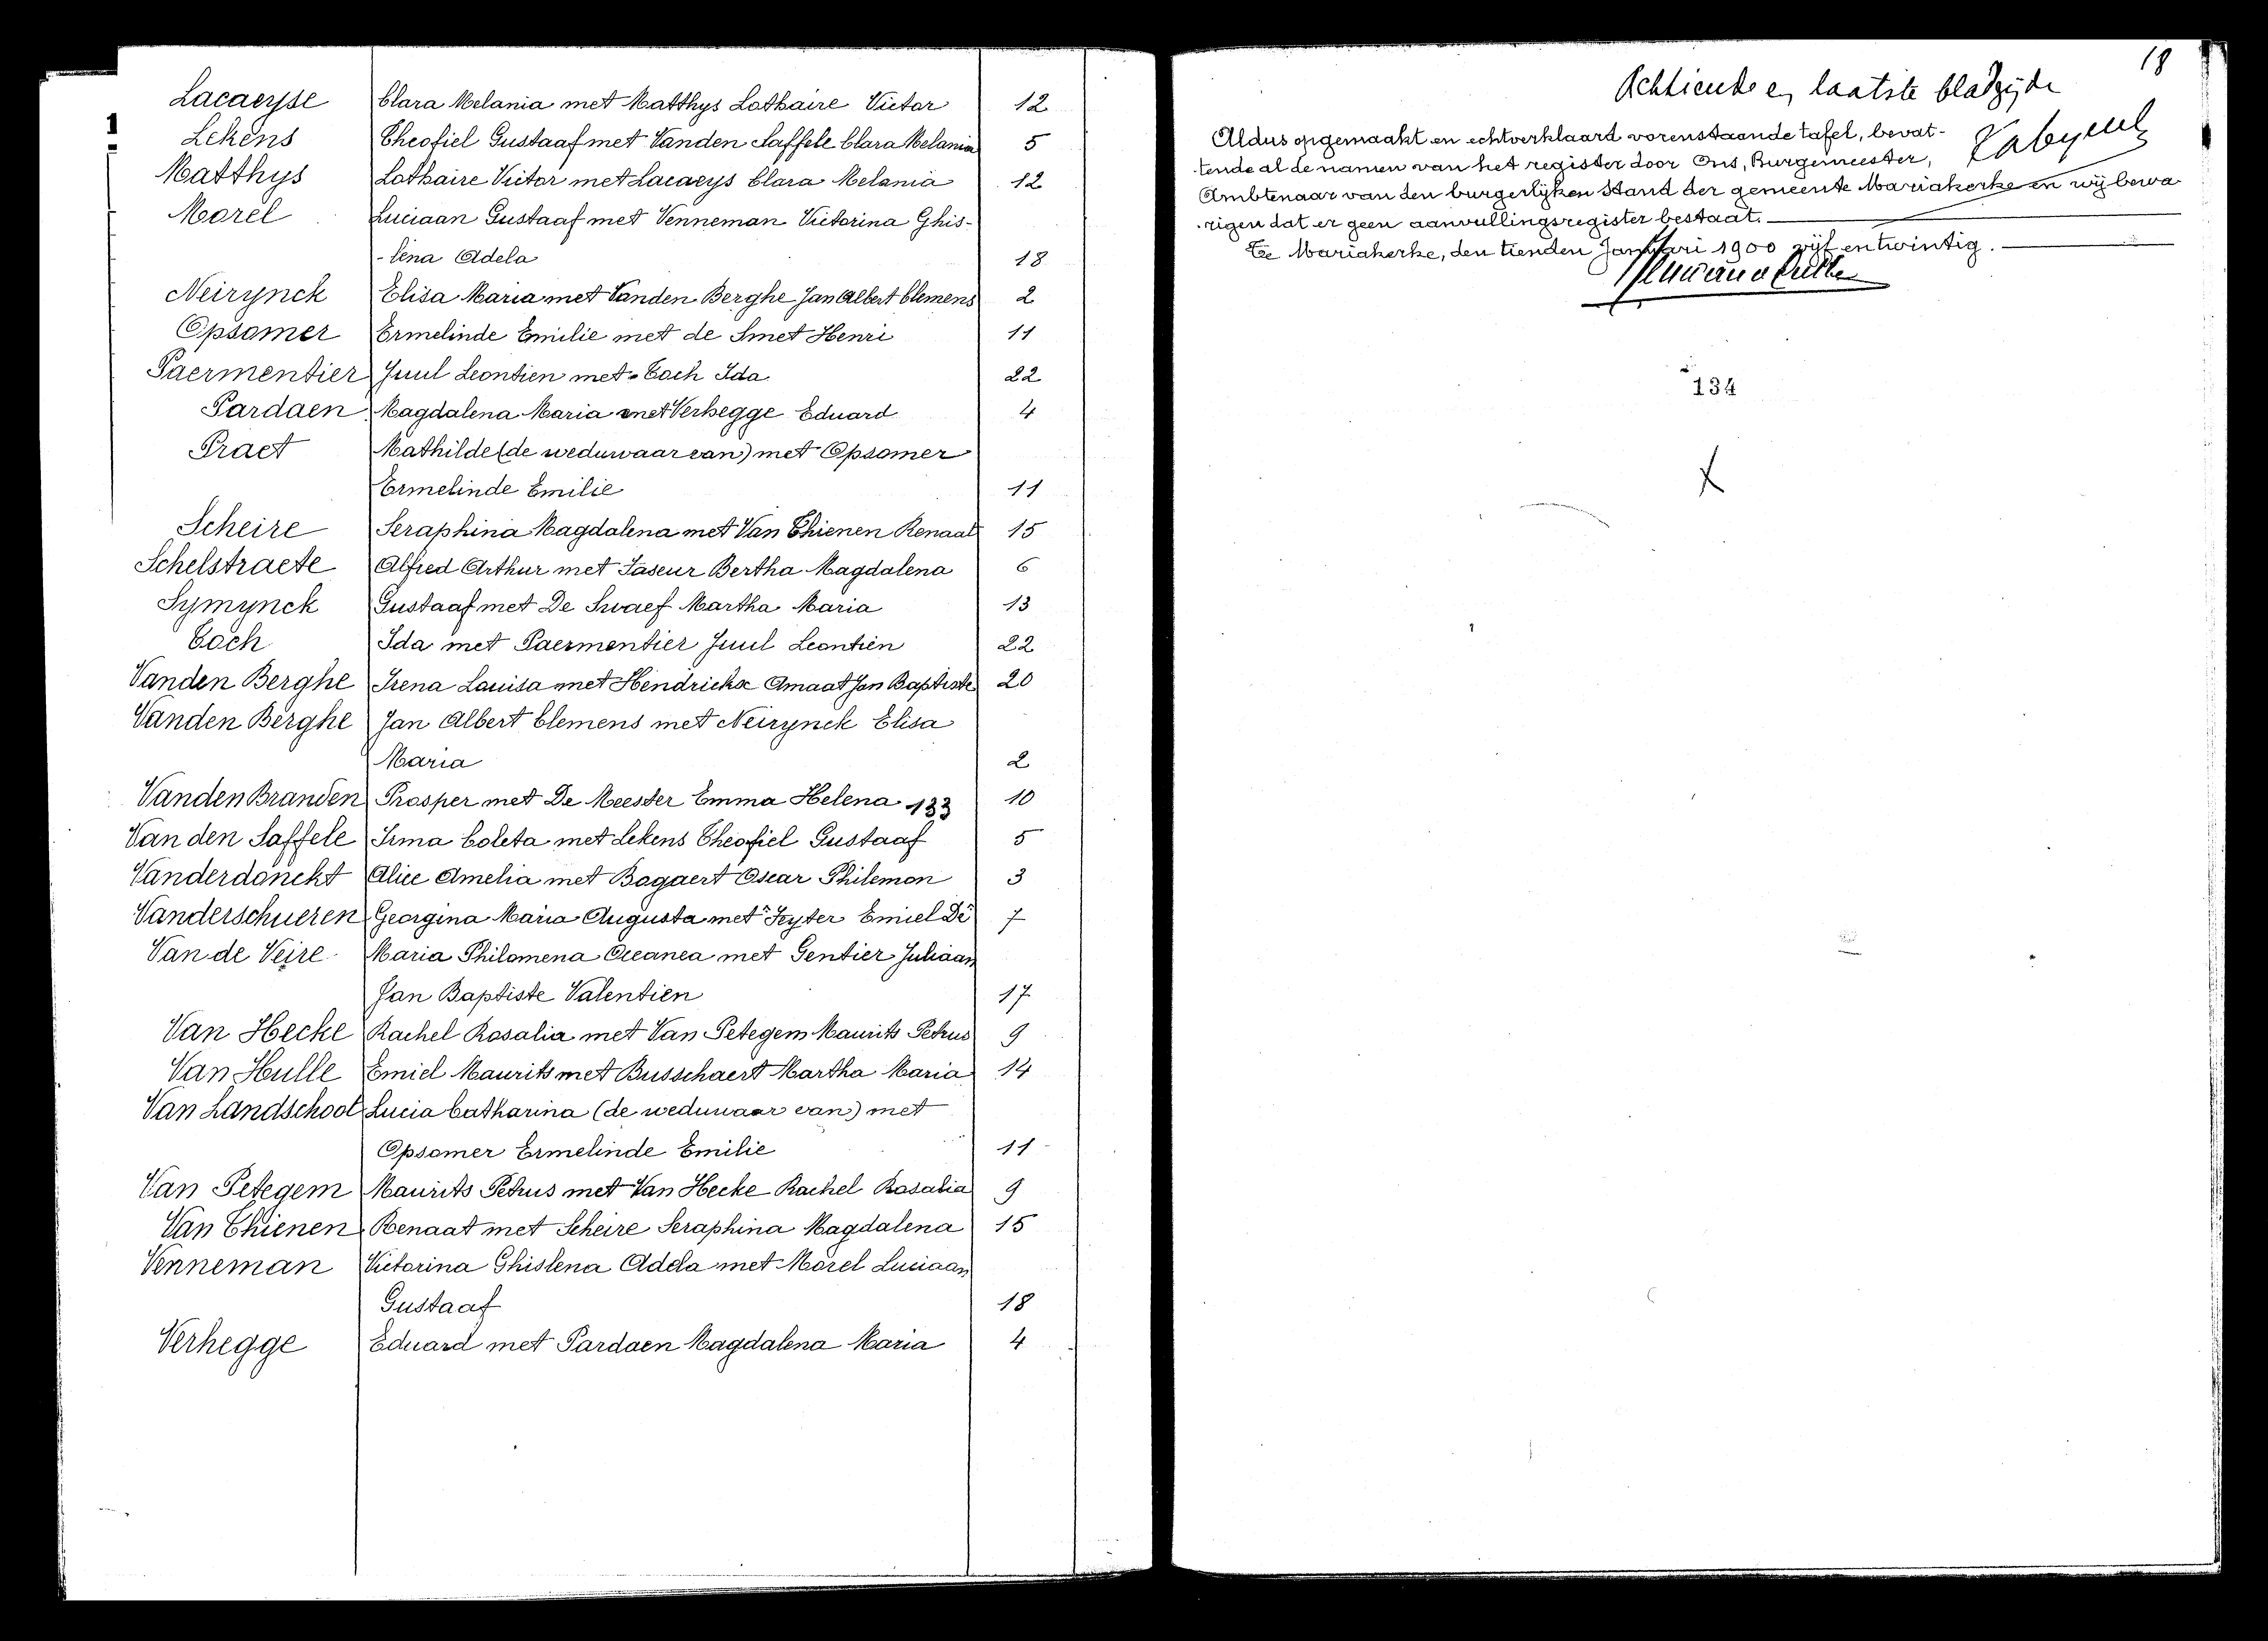 Lacaeyse Clara Melania met Matthys Lothaire Victor 12
Lekens Theofiel Gustaaf met Vanden Saffele Clara Melania 5
Matthys Lothaire Victor met Lacaeys Clara Melania 12
Morel Luciaan Gustaaf met Venneman Victorina Ghis-
-lena Adela 18
Neirynck Elisa Maria met Vanden Berghe Jan Albert Clemens 2
Opsomer Ermelinde Emilie met de Smet Henri 11
Paermentier Juul Leontien met Toch Ida 22
Pardaen Magdalena Maria met Verhegge Eduard 4
Praet Mathilde (de weduwaar van) met Opsomer
Ermelinde Emilie 11
Scheire Seraphina Magdalena met Van Thienen Renaat 15
Schelstraete Alfred Arthur met Taseur Bertha Magdalena 6
Symynck Gustaaf met De Swaef Martha Maria 13
Toch Ida met Paermentier Juul Leontien 22
Vanden Berghe Irena Louisa met Hendrickx Amaat Jan Baptiste 20
Vanden Berghe Jan Albert Clemens met Neirynck Elisa
Maria 2
Vanden Branden Prosper met De Meester Emma Helena 133 10
Van den Saffele Irma Coleta met Lekens Theofiel Gustaaf 5
Vanderdonckt Alice Amelia met Bogaert Oscar Philemon 3
Vanderschueren Georgina Maria Augusta met Feyter Emiel De 7
Van de Veire Maria Philomena Oceanea met Gentier Juliaan
Jan Baptiste Valentien 17
Van Hecke Rachel Rosalia met Van Petegem Maurits Petrus 9
Van Hulle Emiel Maurits met Busschaert Martha Maria 14
Van Landschoot Lucia Catharina (de weduwaar van) met
Opsomer Ermelinde Emilie 11
Van Petegem Maurits Petrus met Van Hecke Rachel Rosalia 9
Van Thienen Renaat met Scheire Seraphina Magdalena 15
Venneman Victorina Ghislena Adela met Morel Luciaan
Gustaaf 18
Verhegge Eduard met Pardaen Magdalena Maria 4
18
Achtiende en laatste bladzijde
Aldus opgemaakt en echtverklaard vorenstaande tafel, bevat-
tende al de namen van het register door Ons, Burgemeester,
Ambtenaar van den burgerlijken stand der gemeente Mariakerke en wij bewa
rigen dat er geen aanvullingsregister bestaat.
Te Mariakerke, den tienden Januari 1900 vijf en twintig.
134